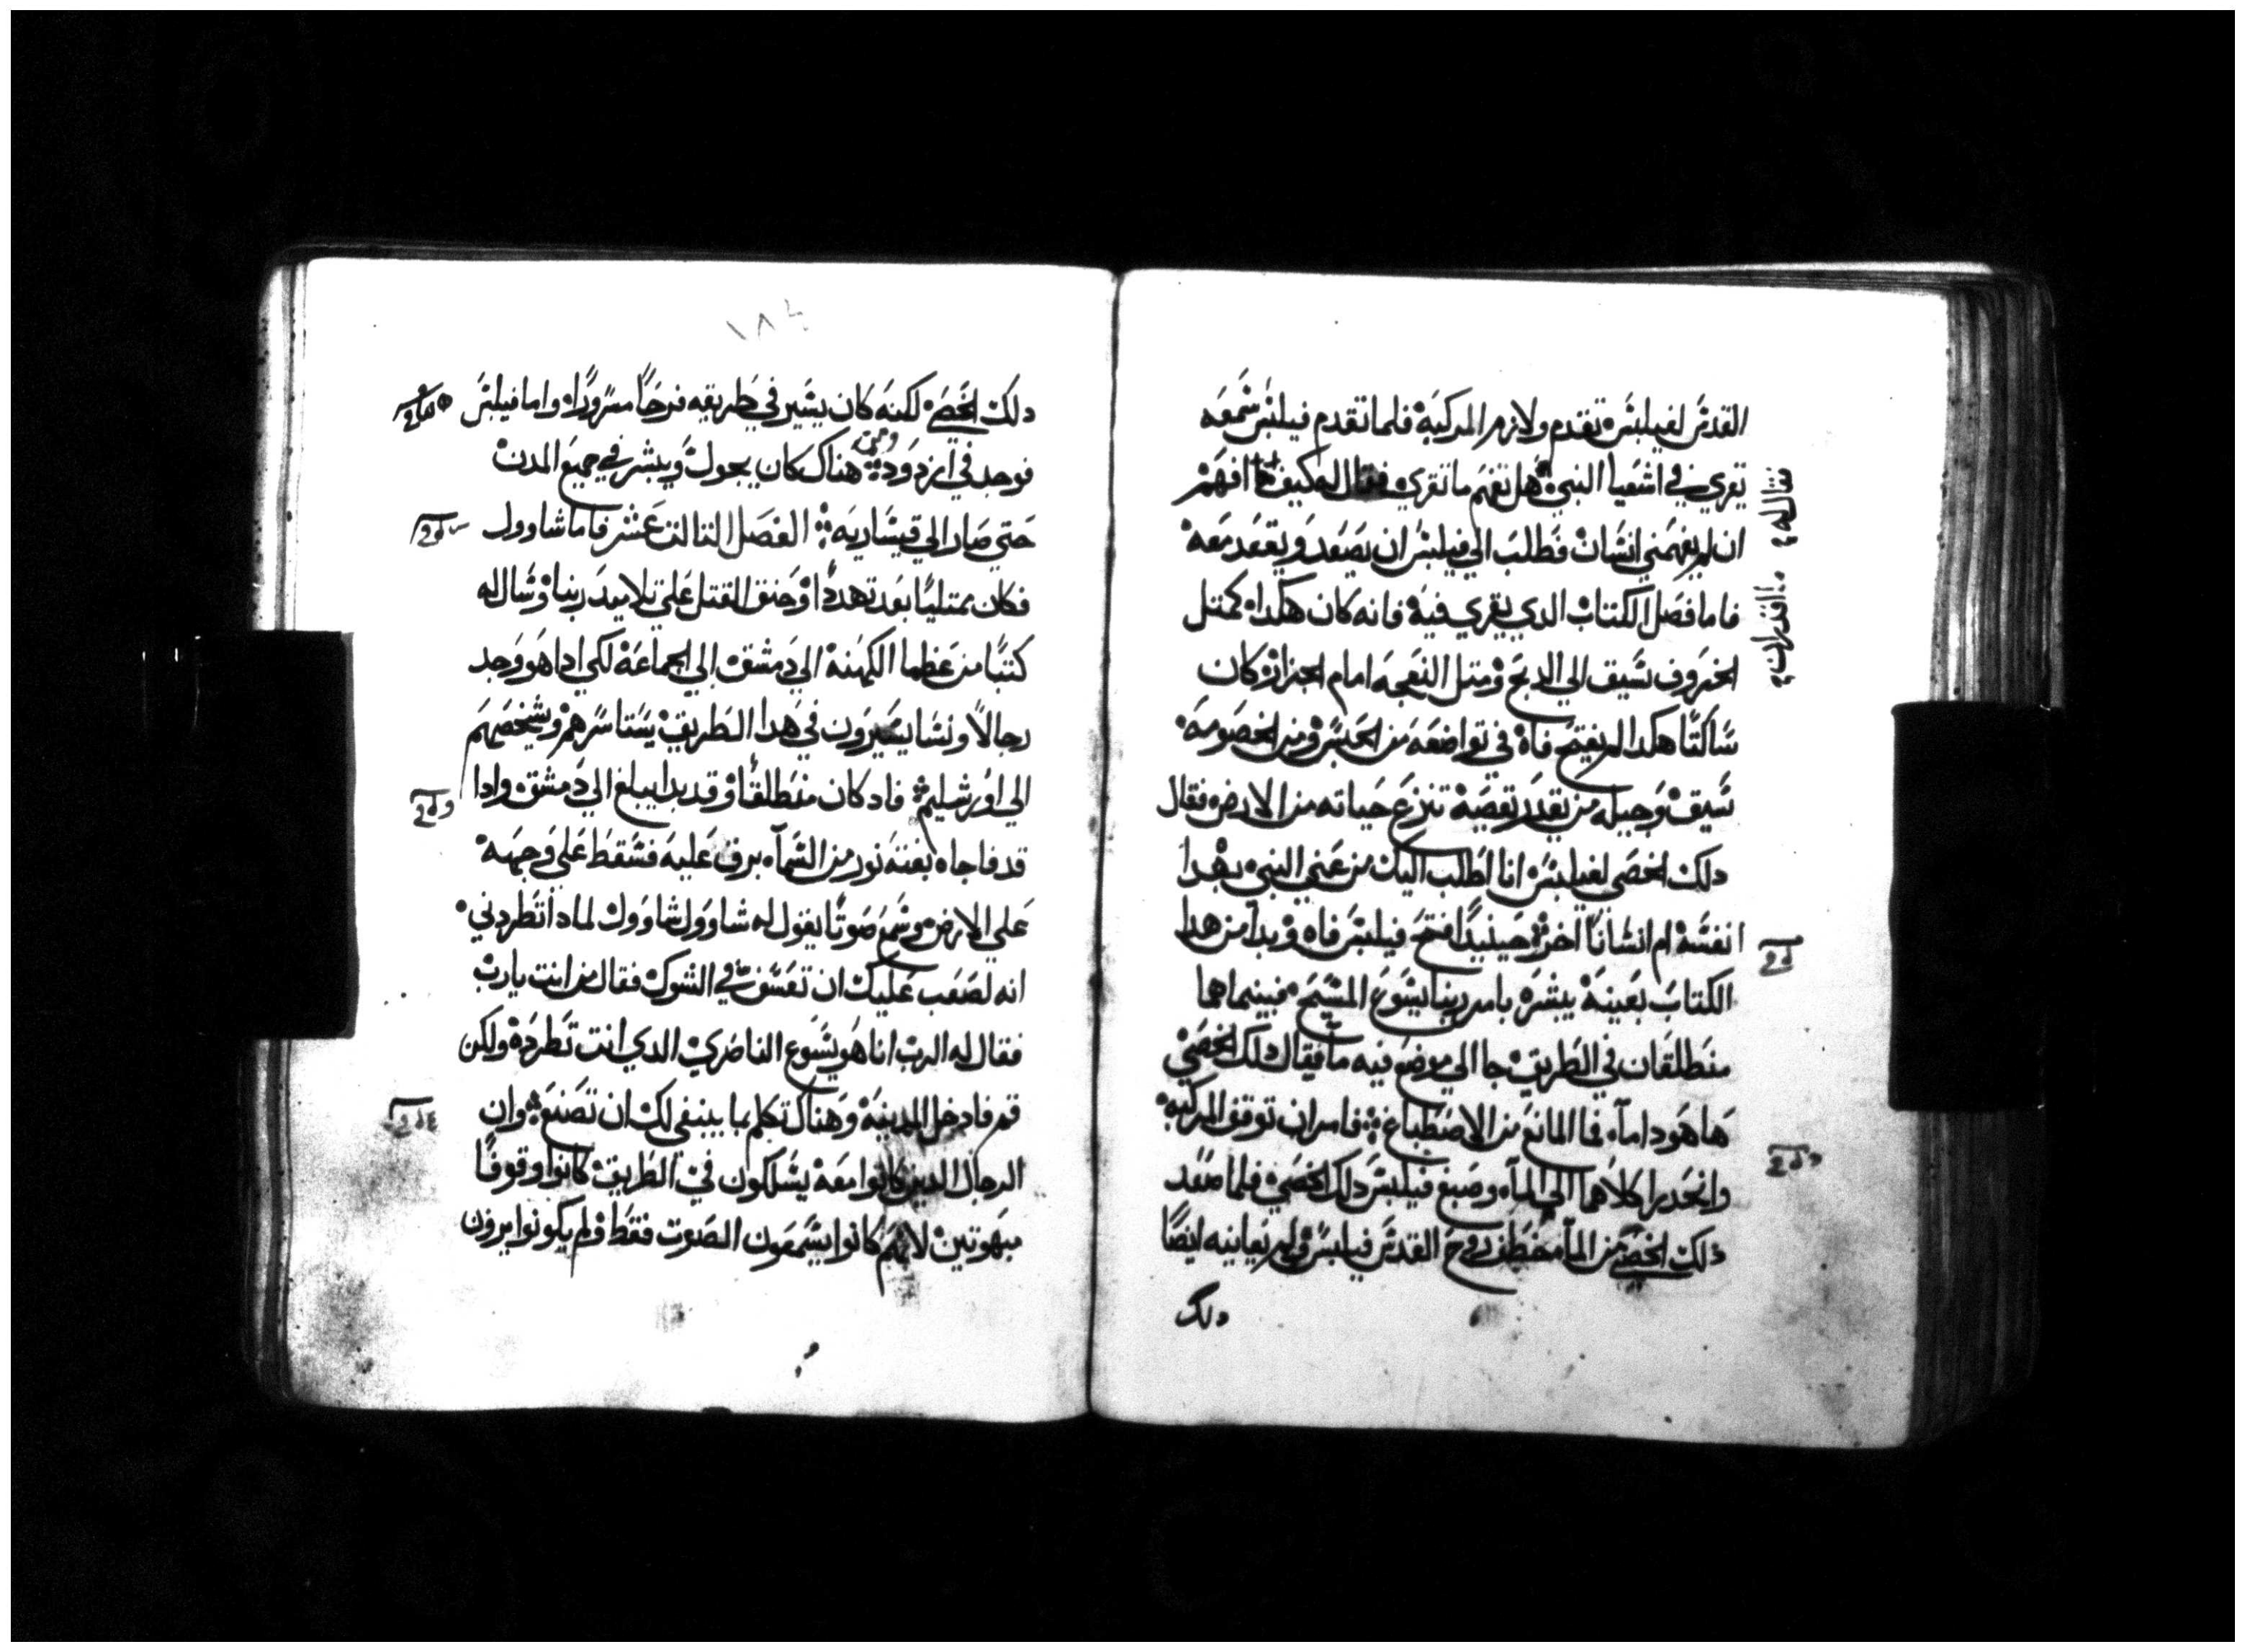 القدس لفيلبس تقدم ولازم المركبة فلما تقدم فيلبس سمعه
يقري في اشعيا النبي هل تفهم ما تقري فقال له كيف افهم
ان لم يفهمني انسان فطلب الي فيلبس ان يصعد ويقعد معه
فاما فصل الكتاب الدي يقري فيه فانه كان هكدا كمتل
الخروف سيق الي الدبح ومتل النعجه امام الجزاز كان
ساكتا هكدا لم يفتح فاه في تواضعه من الحبس ومن الخصومه
سيق وجيله من يقدر يقصه تنزع حياته من الارض فقال
دلك الخصي لفيلبس انا اطلب اليك من عني النبي بهدا
انفسه ام انسانا اخر حينيدا فتح فيلبس فاه وبدا من هدا
الكتاب بعينه يبشره بامر ربنا يسوع المسيح فبينما هما
منطلقان في الطريق جا الي موضع فيه ما فقال دلك الخصي
ها هودا مآء فما المانع من الاصطباغ فامر ان توقف المركبه
وانحدرا كلاهما الي المآء وصبغ فيلبس دلك الخصي فلما صعد
دلك الخصي من المآ خطف روح القدس فيلبس ولم يعاينه ايضا
دلك
فقال له
١٨٤
دلك الخصي لكنه كان يسير في طريقه فرحا مسرورا واما فيلبس
فوجد في ازدود ومن هناك كان يجول ويبشر في جميع المدن
حتي صار الي قيساريه الفصل التالت عشر فاما شاوول
فكان ممتليا بعد تهددا وحنق القتل علي تلاميد ربنا وسال له
كتبا من عظما الكهنة الي دمشق الي الجماعة لكي ادا هو وجد
رجالا ونسا يسيرون في هدا الطريق يستاسرهم ويشخصهم
الي اورشليم فاد كان منطلقا وقد بدا يبلغ الي دمشق وادا
قد فاجاه بغته نور من السمآء برق عليه فسقط علي وجهه
علي الارض وسمع صوتا يقول له شاوول شاوول لمادا تطردني
انه لصعب عليك ان تعسف في الشوك فقال من انت يارب
فقال له الرب انا هو يسوع الناصري الدي انت تطرده ولكن
قم فادخل المدينة وهناك تكلم بما ينبغي لك ان تصنع وان
الرجال الدين كانوا معه يسلكون في الطريق كانوا وقوفا
مبهوتين لانهم كانوا يسمعون الصوت فقط ولم يكونوا يرون